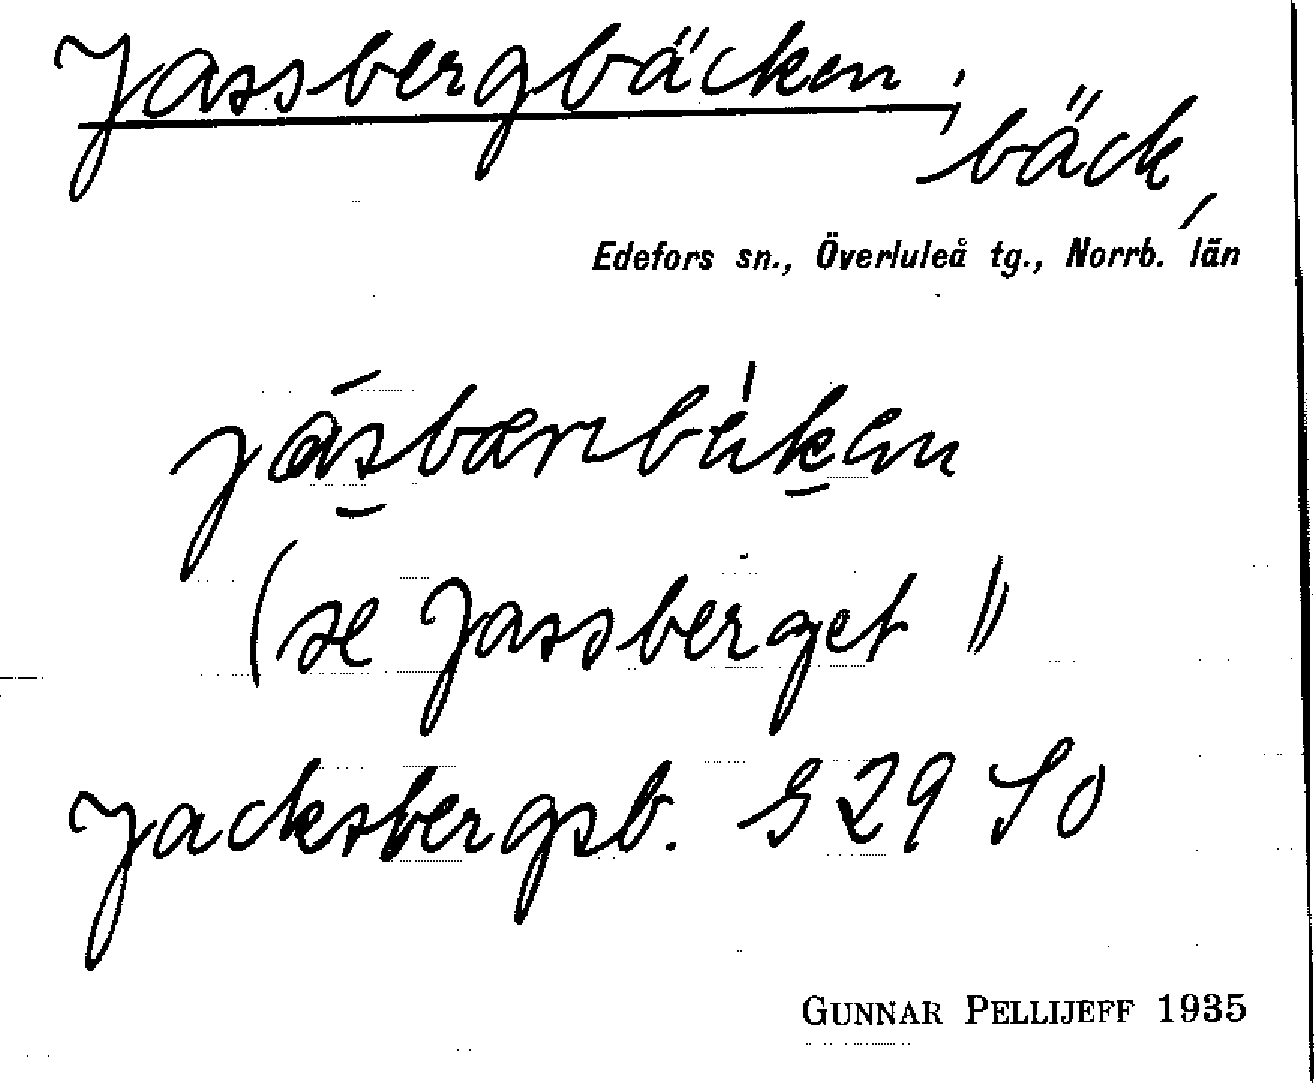 Jassbergbäcken;
bäck,
Edefors sn., Överluleå tg., Norrb. län
(se Jassberget))
Jacksbergsb. S 29 SO
GUNNAR PELLIJEFF 1935